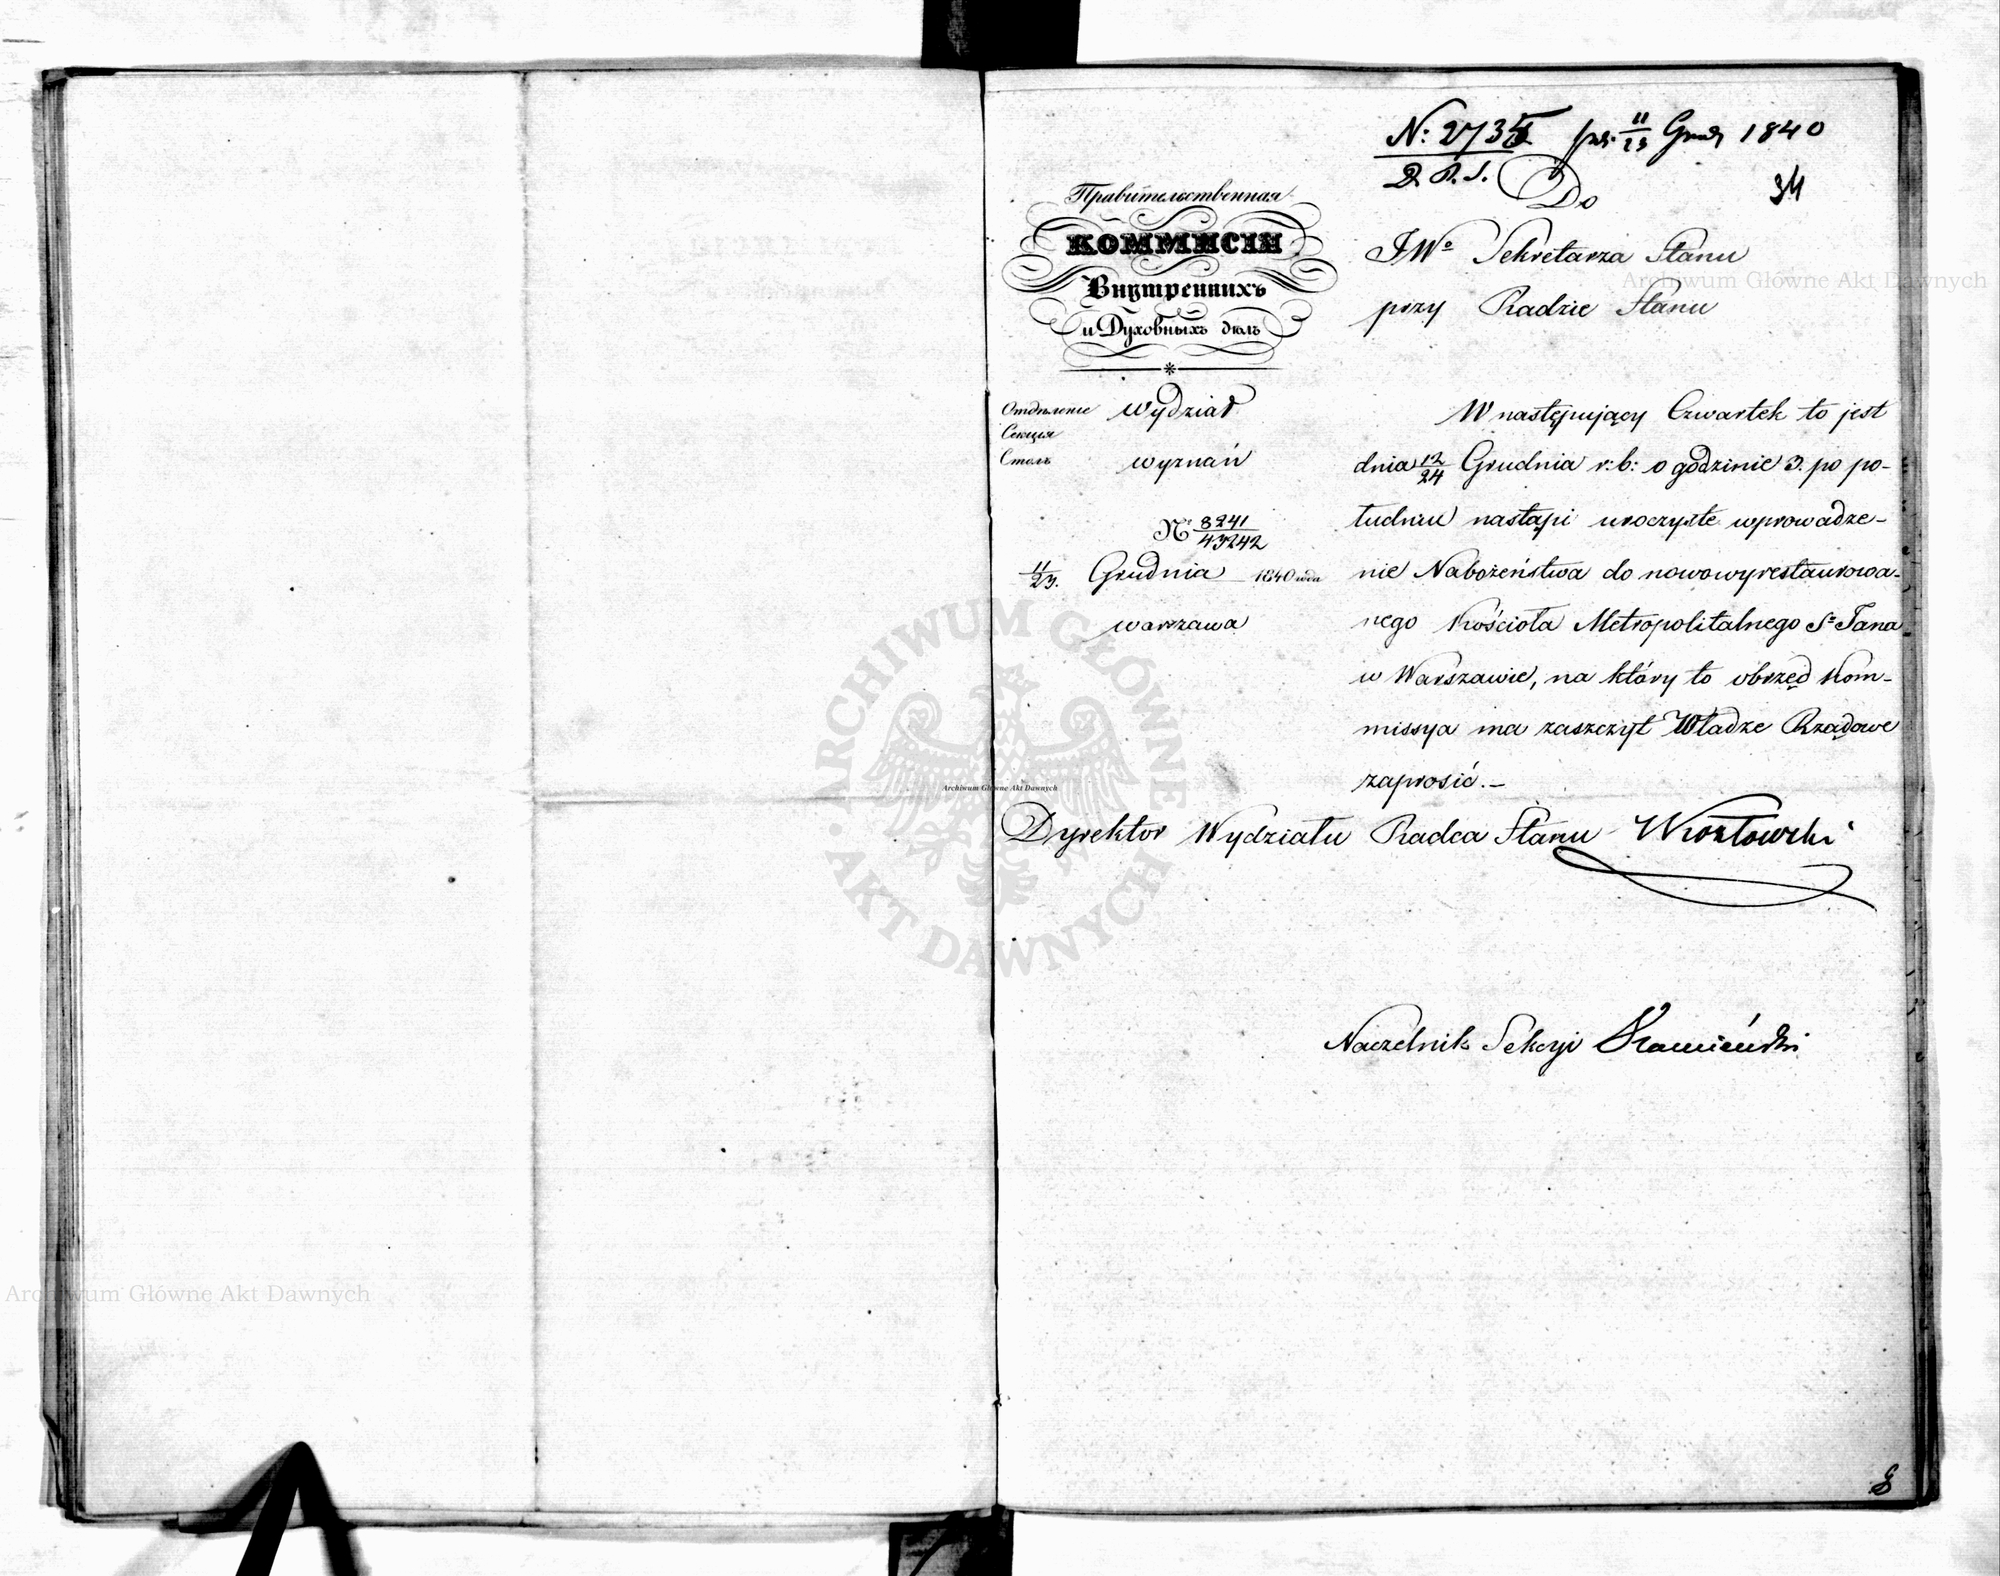 N: 273
D. P. S.
11/23 Grud 1840
34
Правительственная
КОММИСІЯ
Внутреннихъ
и Духовныхъ дѣлъ
Отдѣленіе Wydział
Секція
Столъ wyznań
№ 8241/43242
11/23. Grudnia 1840 года
warszawa
Do
JWo Sekretarza Stanu
przy Radzie Stanu
W następujący Czwartek to jest
dnia 12/24 Grudnia r: b: o godzinie 3. po po-
łudniu nastąpi uroczyste wprowadze-
nie Nabożeństwa do nowowyrestaurowa-
nego Kościoła Metropolitalnego Sgo Jana
w Warszawie, na który to obrzęd Kom-
missya ma zaszczyt Władze Rządowe
zaprosić.–
Dyrektor Wydziału Radca Stanu Kozłowski
Naczelnik Sekcyi Kamieński
8
ARCHIWUM GŁÓWNE
AKT DAWNYCH
Archiwum Główne Akt Dawnych
Archiwum Główne Akt Dawnych
Archiwum Główne Akt Dawnych